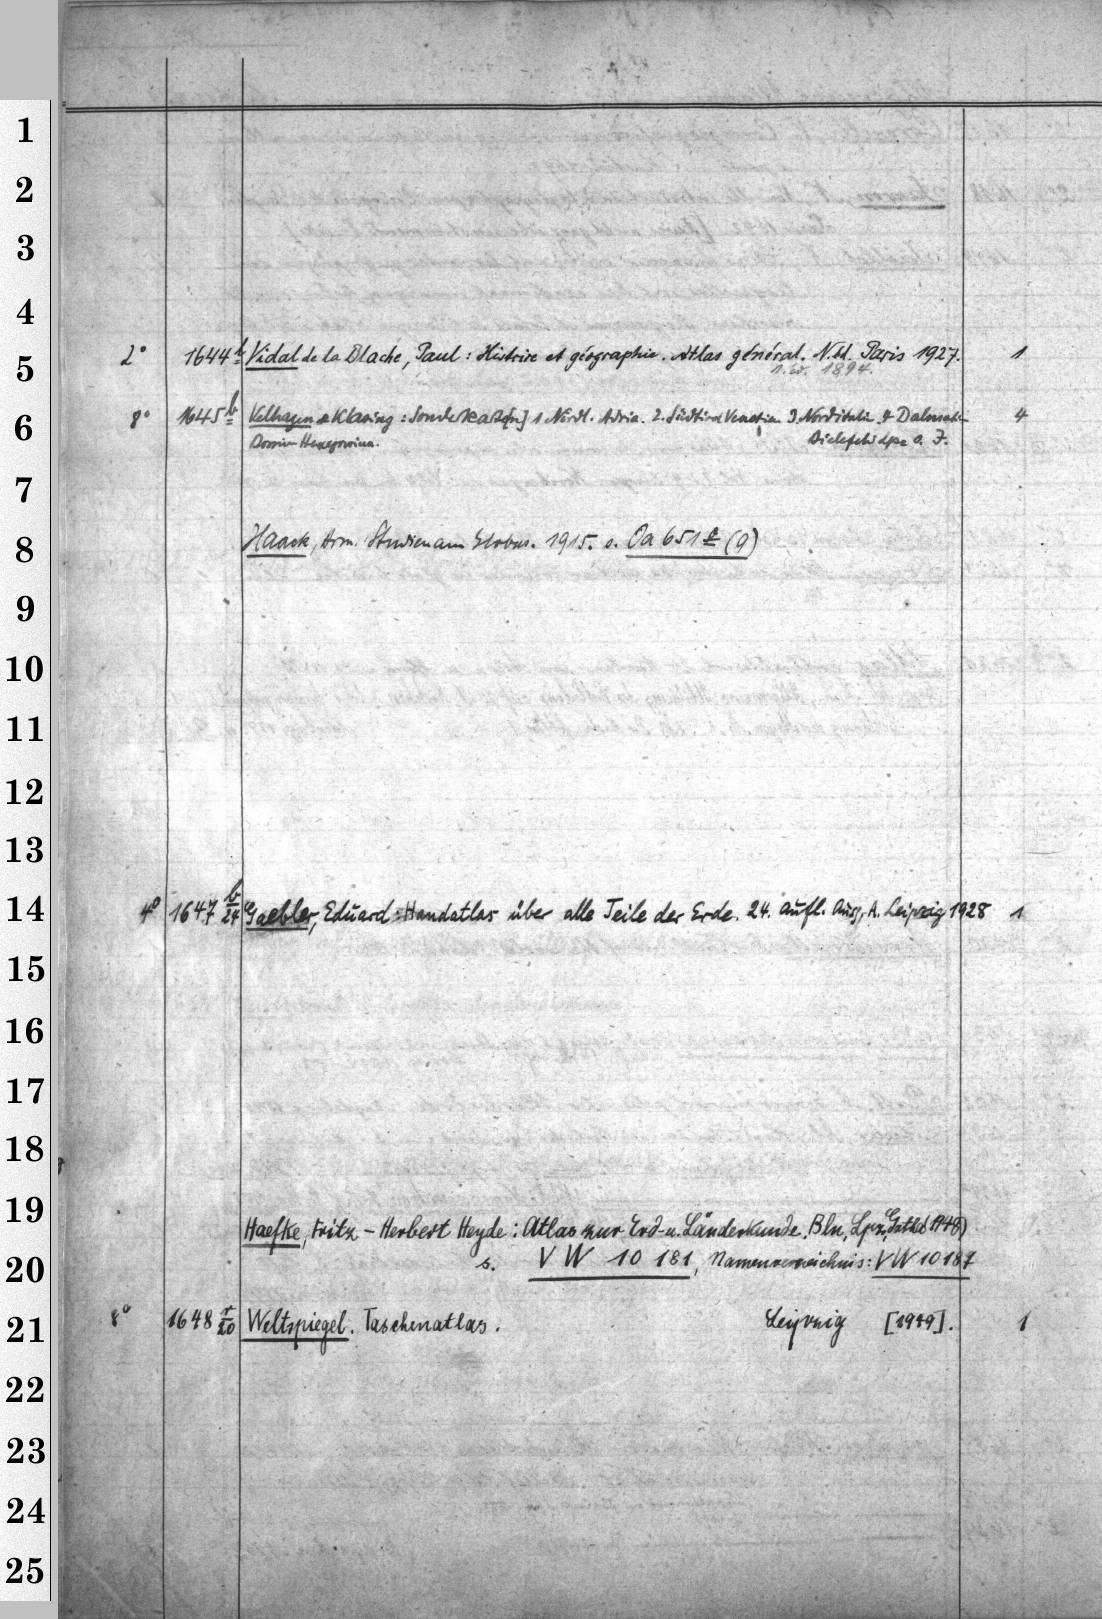 1
2
3
4
5 2° 1644 b Vidal de la Blache, Paul: Histoire et géographie. Atlas général. N. éd. Paris 1927. 1
1. éd. 1894.
6 8° 1645 b Velhagen & Klasing: Sonderkarte[n] 1. Nördl. Adria. 2. Südtirol Venetien 3. Norditalien 4. Dalmatien 4
Bosnien Herzegowina. Bielefeld Lpz. o. J.
7
8 Haack, Hrm. Studien am Globus. 1915. s. Oa 651 (9)
9
10
11
12
13
14 4° 1647 b/24 Gaebler, Eduard: Handatlas über alle Teile der Erde. 24. Aufl. Ausg. A. Leipzig 1928 1
15
16
17
18
19 Haefke, Fritz – Herbert Heyde: Atlas zur Erd- u. Länderkunde. Bln, Lpz, Gotha 1948)
20 s. VW 10 181, Namenverzeichnis: VW 10 187
21 8° 1648 r/20 Weltspiegel. Taschenatlas. Leipzig [1949]. 1
22
23
24
25